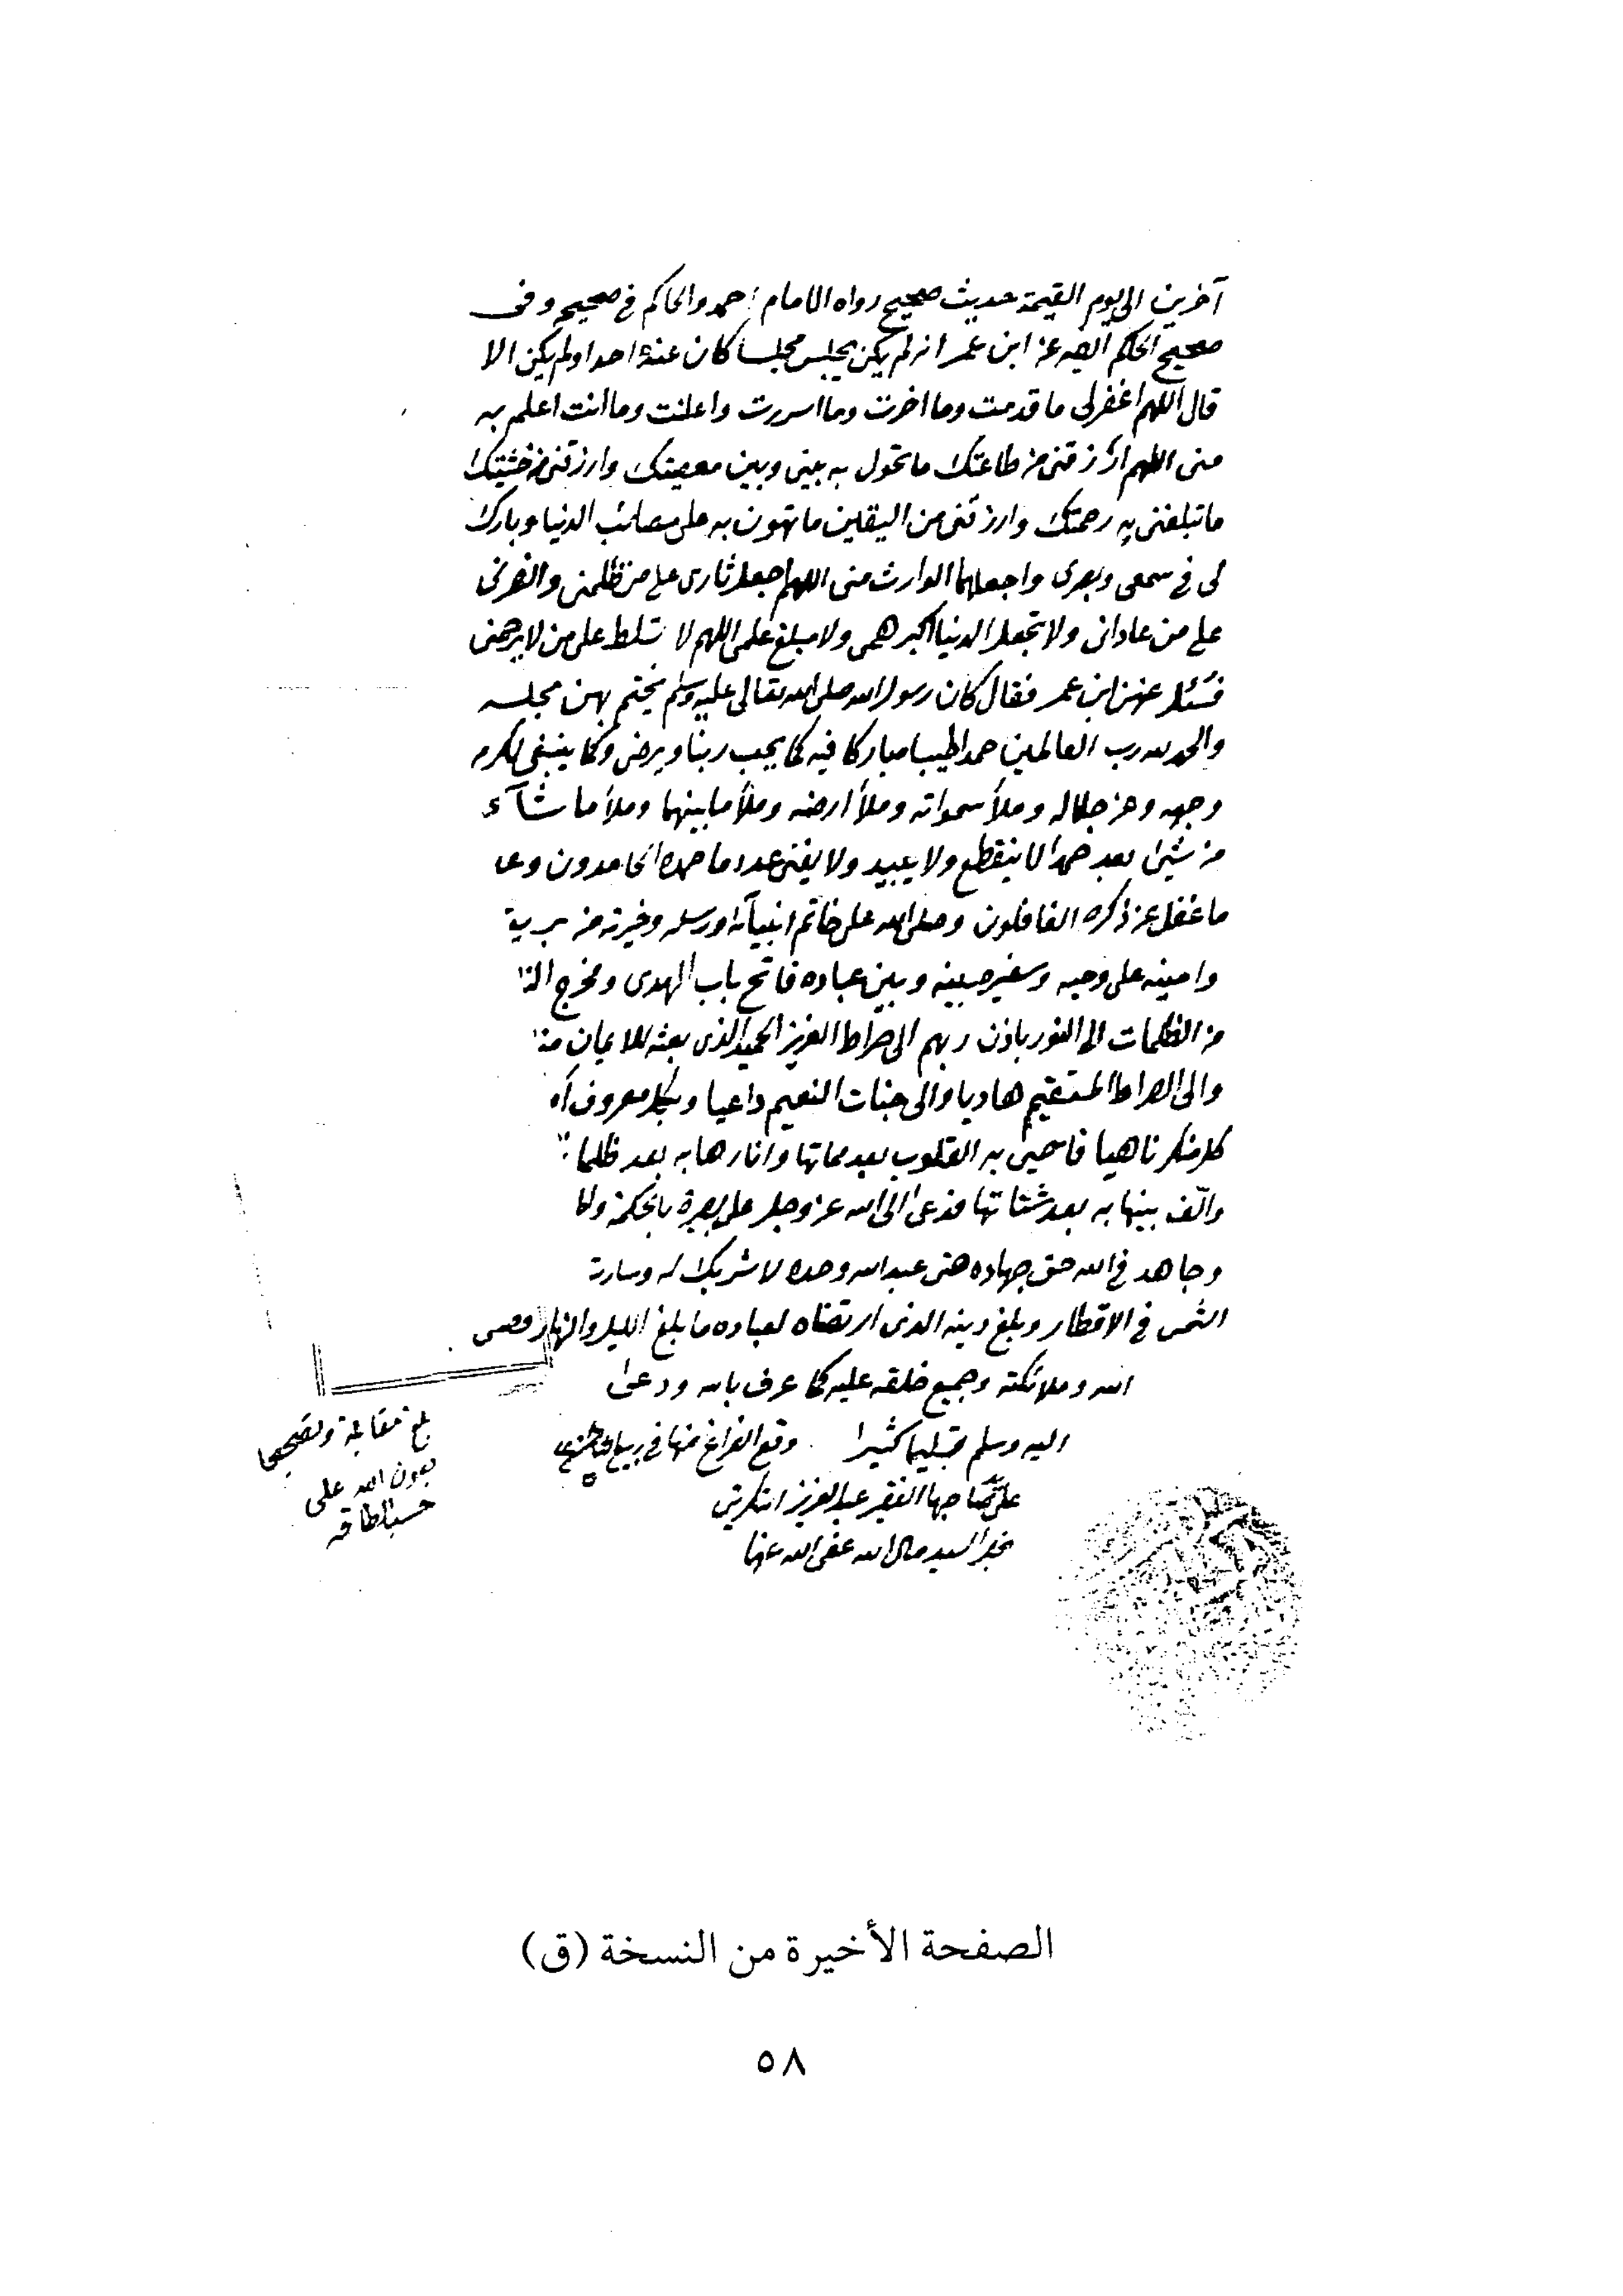 آخرين الى يوم القيمة حديث صحيح رواه الامام احمد والحاكم في صحيحه وفى
صحيح الحاكم ايضا عن ابن عمر انه لم يكن يجلس مجلسا كان عنده احد اولم يكن الا
قال اللهم اغفر لى ما قدمت وما اخرت وما اسررت واعلنت وما انت اعلم به
منى اللهم ارزقنى من طاعتك ما تحول به بينى وبين معصيتك وارزقنى من خشيتك
ما تبلغنى به رحمتك وارزقنى من اليقين ما تهون به على مصائب الدنيا وبارك
لى في سمعى وبصرى واجعلهما الوارث منى اللهم اجعل ثارى على من ظلمنى وانصرنى
على من عادانى ولا تجعل الدنيا اكبر همى ولا مبلغ علمى اللهم لا تسلط على من لا يرحمنى
فسئل عنهن ابن عمر فقال كان رسول الله صلى الله تعالى عليه وسلم يختم بهن مجلسه
والحمد لله رب العالمين حمدا طيبا مباركا فيه كما يحب ربنا ويرضى وكما ينبغى لكرم
وجهه وعز جلاله وملأ سمواته وملأ ارضه وملأ ما بينهما وملأ ما شآء
من شيئ بعد حمدا لا ينقطع ولا يبيد ولا يفنى عدد ما حمده الحامدون وعد
ما غفل عن ذكره الغافلون وصلى الله على خاتم انبيآئه ورسله وخيرته من برية
وامينه على وحيه وسفيره بينه وبين عباده فاتح باب الهدى ومخرج النا
من الظلمات الى النور باذن ربهم الى صراط العزيز الحميد الذى بعثه للايمان منا
والى الصراط المستقيم هاديا والى جنات النعيم داعيا وبكل معروف آم
كل منكر ناهيا فاحيى به القلوب بعد مماتها وانارها به بعد ظلما
والّف بينها به بعد شتاتها فدعى الى الله عز وجل على بصيرة بالحكمة والم
وجاهد في الله حق جهاده حتى عبد الله وحده لا شريك له وسارت
الشمس في الاقطار وبلغ دينه الذى ارتضاه لعباده ما بلغ الليل والنهار وصلى
الله وملائكته وجميع خلقه عليه كما عرف بالله ودعى
اليه وسلم تسليما كثيرا وقع الفراغ منها في ربيع
على صاحبها الفقير عبد العزيز التكريتى
السيد مال الله عفى الله عنها
بلغ مقابلة وتصحيحا
بعون الله على
حسب الطاقه
الصفحة الأخيرة من النسخة (ق)
٥٨